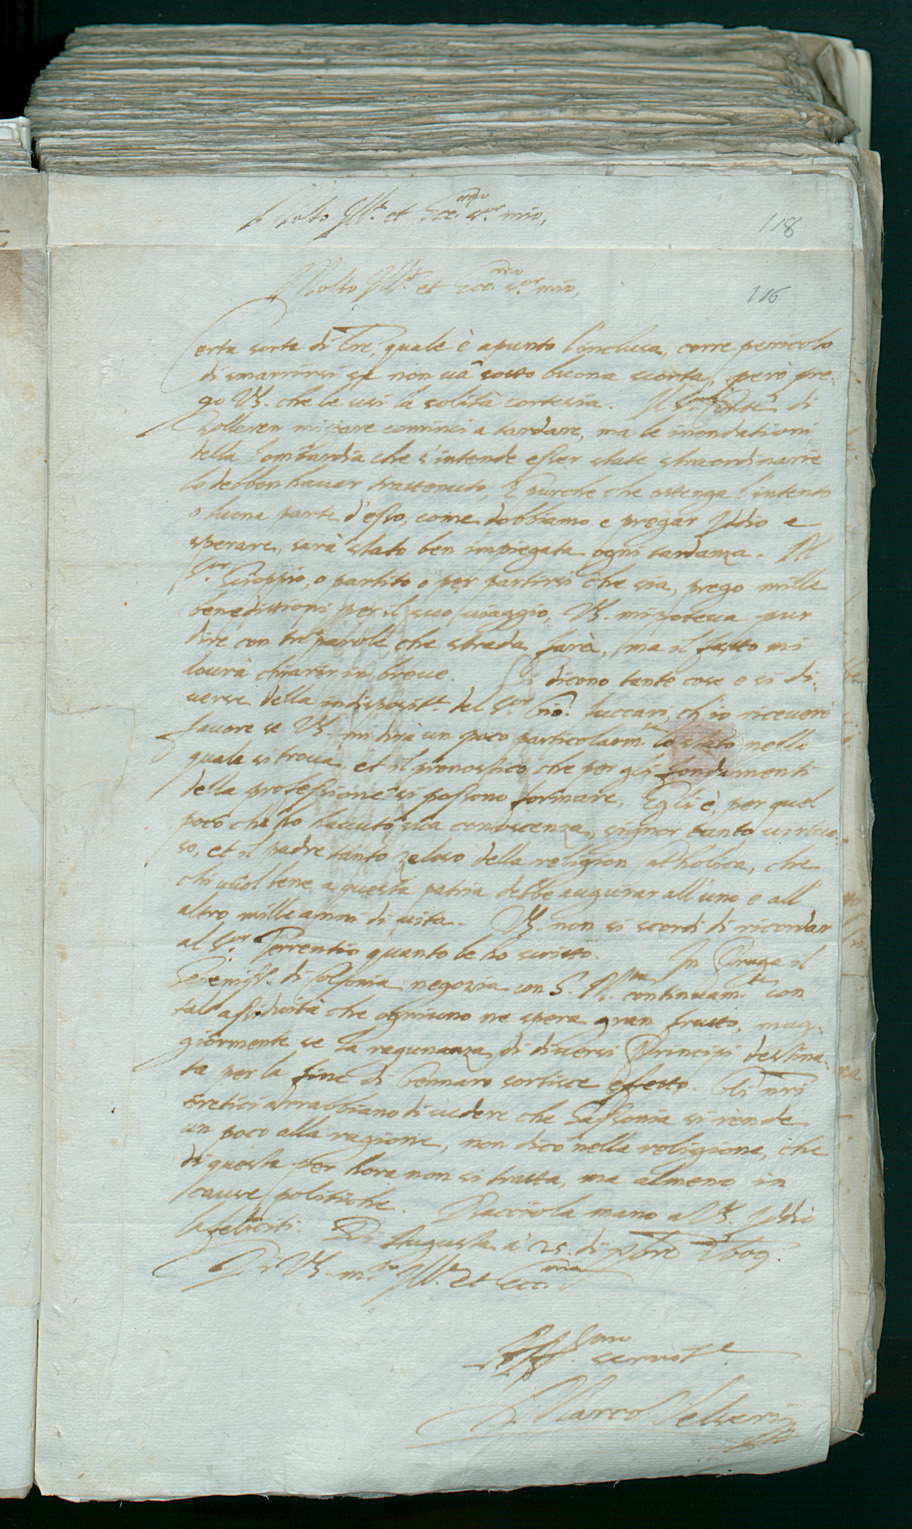 Molto Ill.re et Ecc.mo s.or mio,
118
Molto Ill.re et Ecc.mo s.or mio,
116
Certa sorta di lre, quale è apunto l'inclusa, corre pericolo
di smarrirsi se non và sotto buona scorta, però pre-
go VS. che le usi la solità cortesia. Il s.or di
Zolleren mi pare cominci a tardare, ma le inondationi
della Lombardia che s'intende esser state straordinarie
lo debbon haver trattenuto, E purche che ottenga l'intento
o buona parte d'esso, come dobbiamo e pregar Iddio e
sperare, sarà stato ben impiegata ogni tardanza. Al
s.or Scioppio, o partito o per partirsi che sia, prego mille
benedittioni per il suo viaggio, VS. mi poteva pur
dire con tre parole che strada farà, ma il fatto mi
lourà chiarir in breve. Si dicono tante cose e si di-
verse della indispositt. del s.or Gio. Faccari, ch'io riceverò
favore se VS. mi dirà un poco particolarm.te lo stato nello
quale si trova, et il pronostico che per gli fondamenti
della professione si possono formare, Egli è, per quel
poco che ho havuto sua conoscenza, signor tanto virtuo-
so, et il padre tanto zeloso della religion catholica, che
chi vuol bene a questa patria debbe augurar all'uno e all'
altro mille anni di vita. VS. non si scordi di ricordar
al s.or Terrentio quanto le ho scritto. In Praga il
Sereniss. di Colonia negozia con S. M.tà continuam.te con
tale assiduità che ogniuno ne spera gran frutto, mag-
giormente se la ragunanza di diversi Principi destina-
ta per la fine di Gennaro sortisce effetto. Gli nri
eretici arrabbiano di vedere che Sassonia si rende
un poco alla ragione, non dico nella religione, che
di questa per hora non si tratta, ma almeno in
cause politiche. Bacciola mano a VS. Iddio
la feliciti. Di Augusta a 25. di Xbre 1609.
Di VS. m.to Ill.re et Ecc.ma
Aff.mo servit.e
Marco Velseri